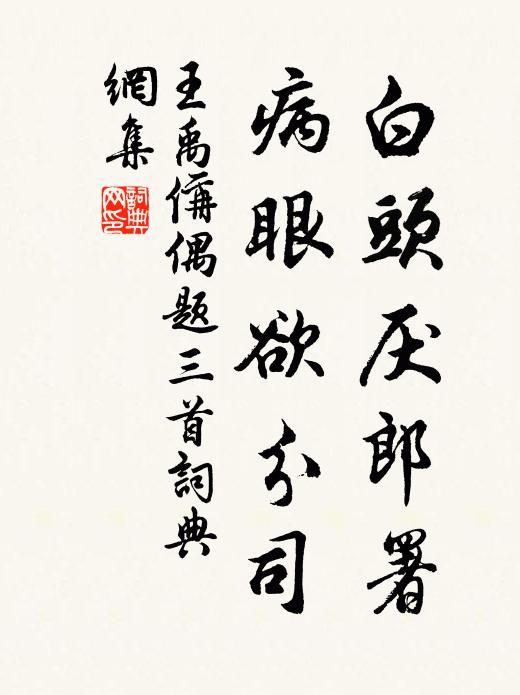 白頭厌郎署
病眼欲分司
王禹偁偶题三首詞典
網集
詞典网印